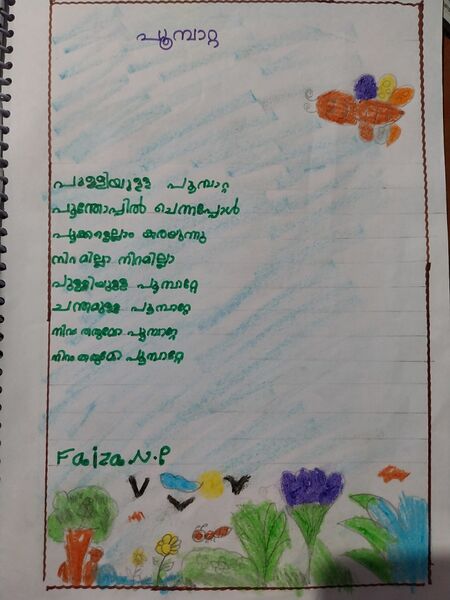 പൂമ്പാറ്റ
പുള്ളിയുള്ള പൂമ്പാറ്റ
പൂന്തോപ്പിൽ ചെന്നപ്പോൾ
പൂക്കളെല്ലാം കരയുന്നു
നിറമില്ലാ നിറമില്ലാ
പുള്ളിയുള്ള പൂമ്പാറ്റേ
ചന്തമുള്ള പൂമ്പാറ്റേ
നിറം തരുമോ പൂമ്പാറ്റേ
നിറം തരുമോ പൂമ്പാറ്റേ
Faiza N.P